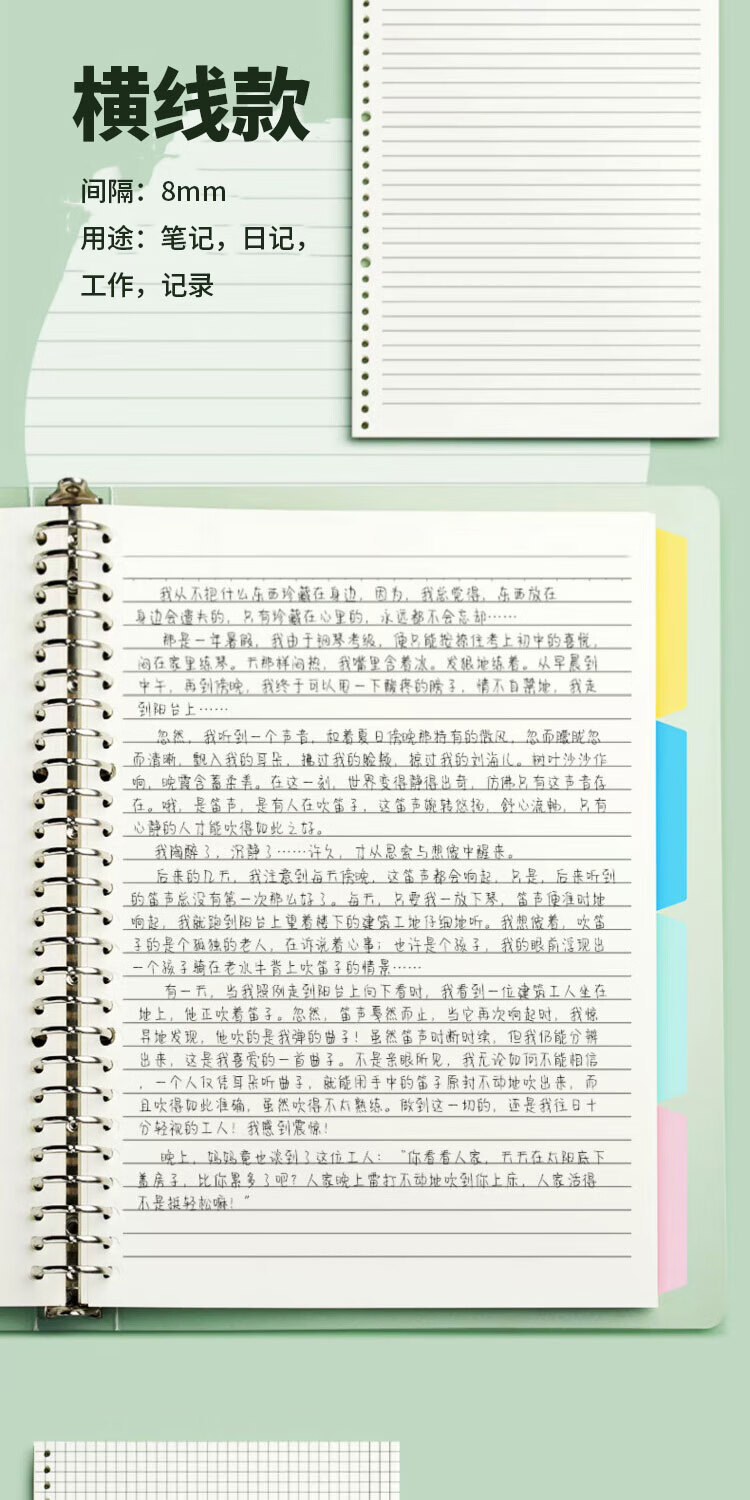 横线款
间隔：8mm
用途：笔记，日记，
工作，记录
我从不把什么东西珍藏在身边，因为，我总觉得，东西放在
身边会遗失的，只有珍藏在心里的，永远都不会忘却……
那是一年暑假，我由于钢琴考级，便只能按捺住考上初中的喜悦，
闷在家里练琴。天那样闷热，我嘴里含着冰。发狠地练着。从早晨到
中午，再到傍晚，我终于可以甩一下酸疼的膀子，情不自禁地，我走
到阳台上……
忽然，我听到一个声音，和着夏日傍晚那特有的微风，忽而朦胧忽
而清晰，飘入我的耳朵，拂过我的脸颊，掠过我的刘海儿。树叶沙沙作
响，晚霞含蓄柔美。在这一刻，世界变得静得出奇，仿佛只有这声音存
在。哦，是笛声，是有人在吹笛子，这笛声婉转悠扬，舒心流畅，只有
心静的人才能吹得如此之好。
我陶醉了，沉静了……许久，才从思索与想像中醒来。
后来的几天，我注意到每天傍晚，这笛声都会响起，只是，后来听到
的笛声总没有第一次那么好了。每天，只要我一放下琴，笛声便准时地
响起，我就跑到阳台上望着楼下的建筑工地仔细地听。我想像着，吹笛
子的是个孤独的老人，在诉说着心事；也许是个孩子，我的眼前浮现出
一个孩子躺在老水牛背上吹笛子的情景……
有一天，当我照例走到阳台上向下看时，我看到一位建筑工人坐在
地上，他正吹着笛子。忽然，笛声戛然而止，当它再次响起时，我惊
异地发现，他吹的是我弹的曲子！虽然笛声时断时续，但我仍能分辨
出来，这是我喜爱的一首曲子。不是亲眼所见，我无论如何不能相信
，一个人仅凭耳朵听曲子，就能用手中的笛子原封不动地吹出来，而
且吹得如此准确，虽然吹得不太熟练。做到这一切的，还是我往日十
分轻视的工人！我感到震惊！
晚上，妈妈竟也谈到了这位工人：“你看看人家，天天在太阳底下
盖房子，比你累多了吧？人家晚上雷打不动地吹到你上床，人家活得
不是挺轻松嘛！”